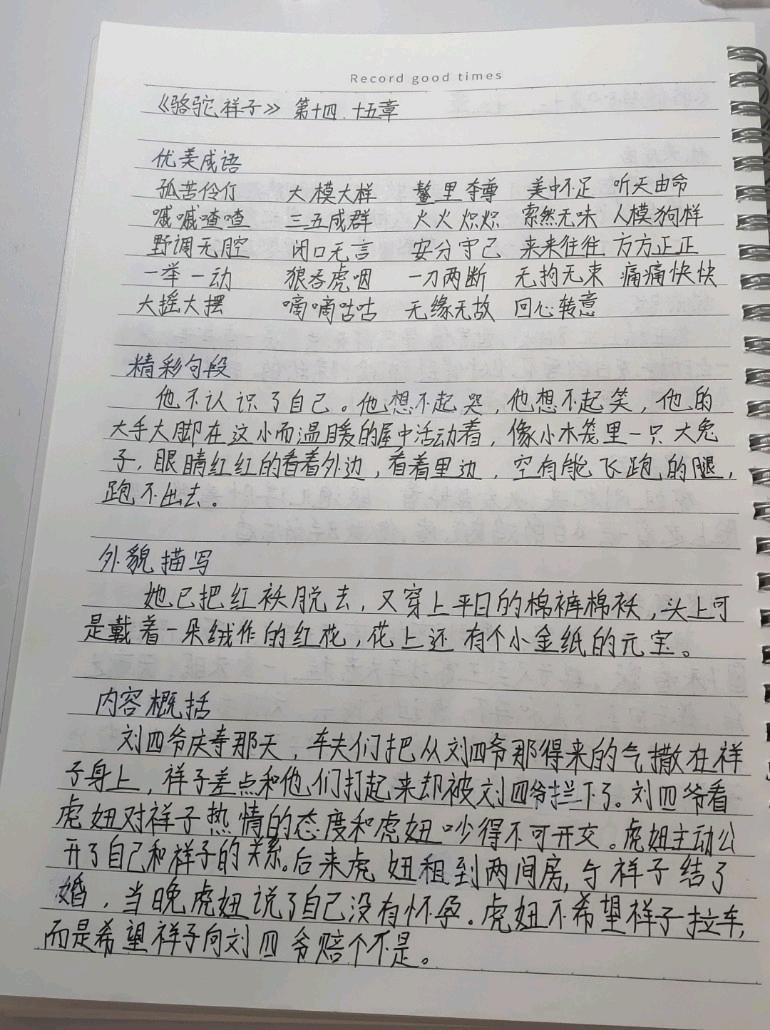 Record good times
《骆驼祥子》 第十四、十五章
优美成语
孤苦伶仃 大模大样 鳌里夺尊 美中不足 听天由命
嘁嘁喳喳 三五成群 火火炽炽 索然无味 人模狗样
野调无腔 闭口无言 安分守己 来来往往 方方正正
一举一动 狼吞虎咽 一刀两断 无拘无束 痛痛快快
大摇大摆 嘀嘀咕咕 无缘无故 回心转意
精彩句段
他不认识了自己。他想不起哭，他想不起笑，他的
大手大脚在这小而温暖的屋中活动着，像小木笼里一只大兔
子，眼睛红红的看着外边，看着里边，空有能飞跑的腿，
跑不出去。
外貌描写
她已把红袄脱去，又穿上平日的棉裤棉袄，头上可
是戴着一朵绒作的红花，花上还有个小金纸的元宝。
内容概括
刘四爷庆寿那天，车夫们把从刘四爷那得来的气撒在祥
子身上，祥子差点和他们打起来却被刘四爷拦下了。刘四爷看
虎妞对祥子热情的态度和虎妞吵得不可开交。虎妞主动公
开了自己和祥子的关系。后来虎妞租到两间房，与祥子结了
婚，当晚虎妞说了自己没有怀孕。虎妞不希望祥子拉车，
而是希望祥子向刘四爷赔个不是。